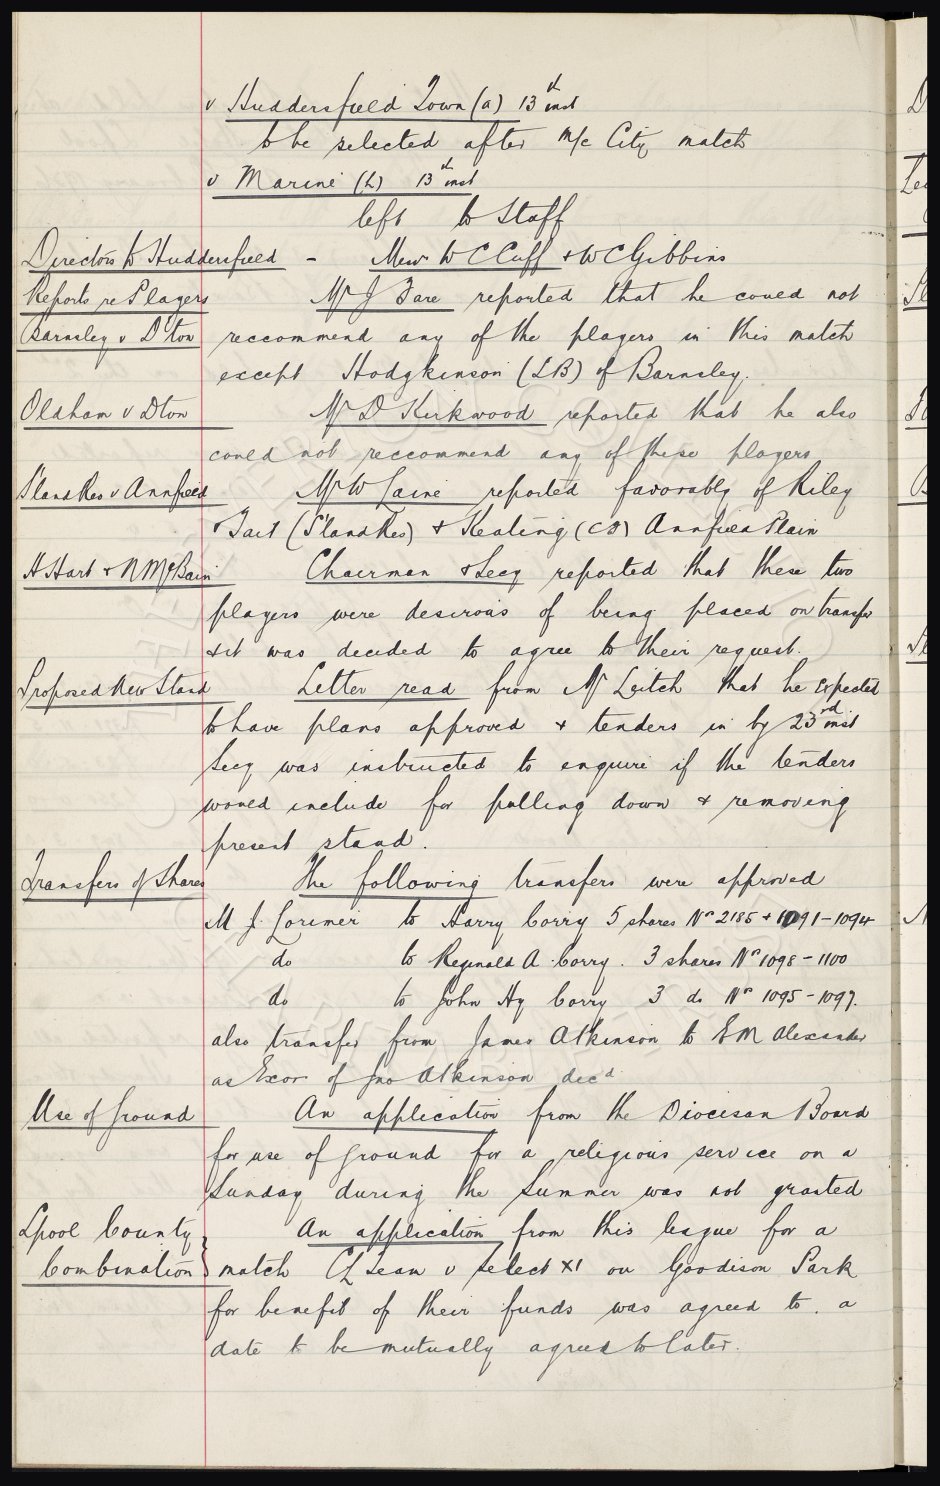 v Huddersfield Town (a) 13th inst
to be selected after M/c City match
v Marine (h) 13th inst
left to Staff
Directors to Huddersfield - Messrs W C Cuff & W C Gibbins
Reports re Players Mr J Fare reported that he could not
Barnsley v D'ton reccommend any of the players in this match
except Hodgkinson (LB) of Barnsley.
Oldham v Dton Mr D Kirkwood reported that he also
could not reccommend any of these players
S'land Res v Annfield Mr W Caine reported favorably of Riley
& Tait (S'land Res) & Keating (CF) Annfield Plain
H Hart & N McBain Chairman & Secy reported that these two
players were desirous of being placed on transfer
& it was decided to agree to their request.
Proposed New Stand Letter read from Mr Leitch that he expected
to have plans approved & tenders in by 23rd inst
Secy was instructed to enquire if the tenders
would include for pulling down & removing
present stand.
Transfers of Shares The following transfers were approved
M J. Lorimer to Harry Corry 5 shares Nos 2185 & 1091-1094
do to Reginald A. Corry. 3 shares Nos 1098-1100
do to John Hy Corry 3 do Nos 1095-1097.
also transfer from James Atkinson to E M Alexander
as Exor of Jno Atkinson decd
Use of Ground An application from the Diocisan Board
for use of ground for a religious service on a
Sunday during the Summer was not granted
Lpool County An application from this league for a
Combination } match Ch Team v Select XI on Goodison Park
for benefit of their funds was agreed to. a
date to be mutually agreed to later.